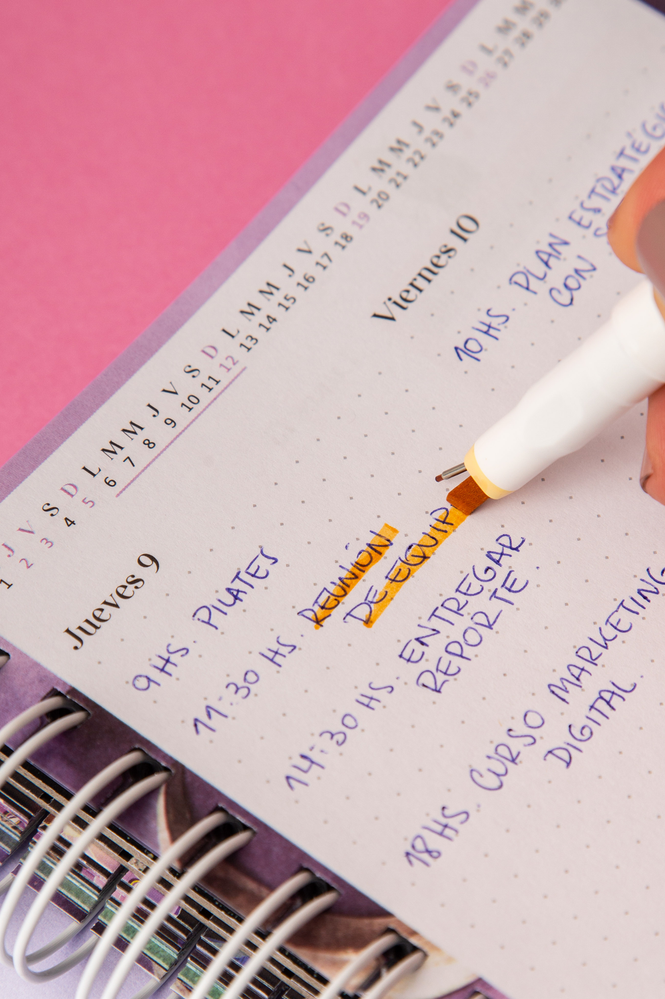 J V S D L M M J V S D L M M J V S D L M M J V S D L M M
1 2 3 4 5 6 7 8 9 10 11 12 13 14 15 16 17 18 19 20 21 22 23 24 25 26 27 28 29
Jueves 9
9HS PILATES
11:30 HS REUNIÓN
DE EQUIP
14:30 HS ENTREGAR
REPORTE.
18HS CURSO MARKETING
DIGITAL
Viernes 10
10HS. PLAN ESTRATÉGIC
CON